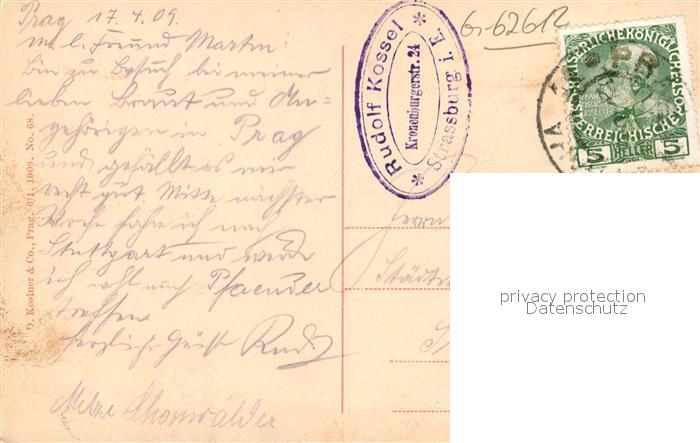 Prag 17.4.09.
m. l. Freund Martin!
Bin zu Besuch bei meiner
lieben Braut und An=
gehörigen in Prag
und gefällt es mir
recht gut Mitte nächster
Woche fahre ich nach
Stuttgart und werde
ich wohl auch Pfaender
treffen.
herzliche Grüße Rud.
Mitzi Schönwälder
D. Kosiner & Co., Prag. 6/I. 1908. No. 68.
Rudolf Kossel
Kronenburgerstr. 24
Strassburg i. E.
Gr-62612
KAISERLICHE KÖNIGLICHE
ÖSTERREICHISCHE
5 HELLER 5
PR
Herrn
privacy protection
Datenschutz